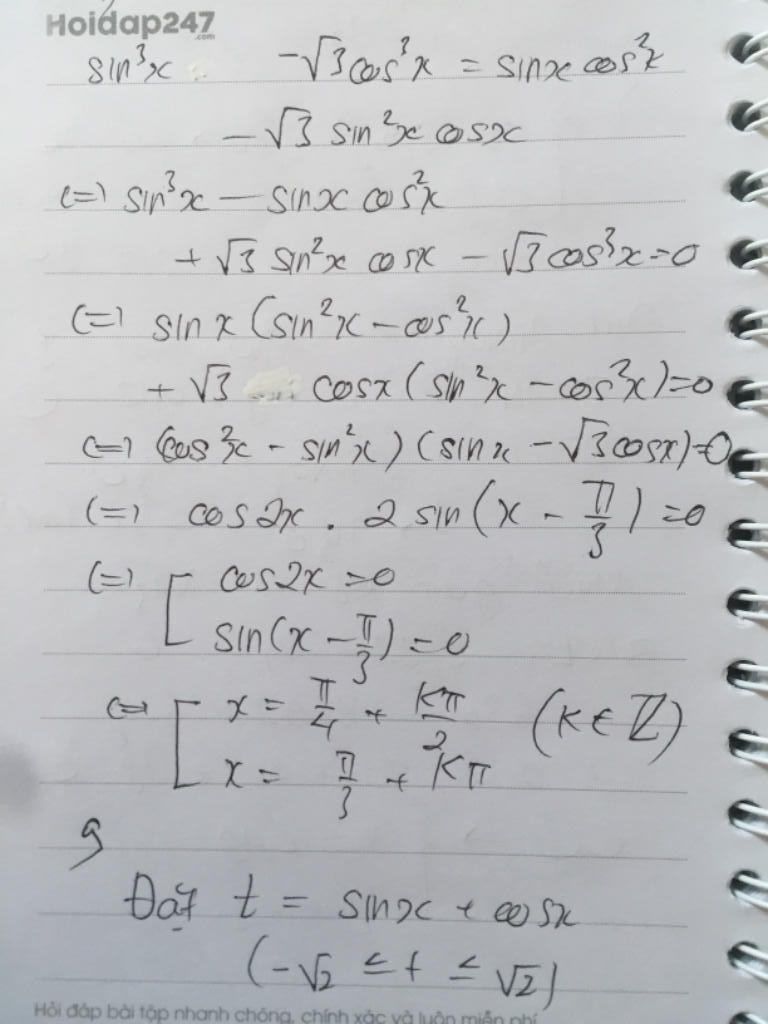 Hoidap247
.com
sin³x -√3cos³x = sinx cos²x
-√3 sin²x cosx
(=) sin³x - sinx cos²x
+ √3 sin²x cosx - √3cos³x=0
(=) sin x (sin²x - cos²x)
+ √3 cosx (sin²x - cos²x)=0
(=) (cos²x - sin²x) (sinx - √3cosx)=0
(=) cos2x . 2 sin(x - π/3) =0
(=) [ cos2x =0
sin(x - π/3) =0
(=) [ x = π/4 + Kπ/2 (K∈Z)
x = π/3 + Kπ
9
Đặt t = sinx + cosx
(-√2 ≤ t ≤ √2)
Hỏi đáp bài tập nhanh chóng, chính xác và luôn miễn phí